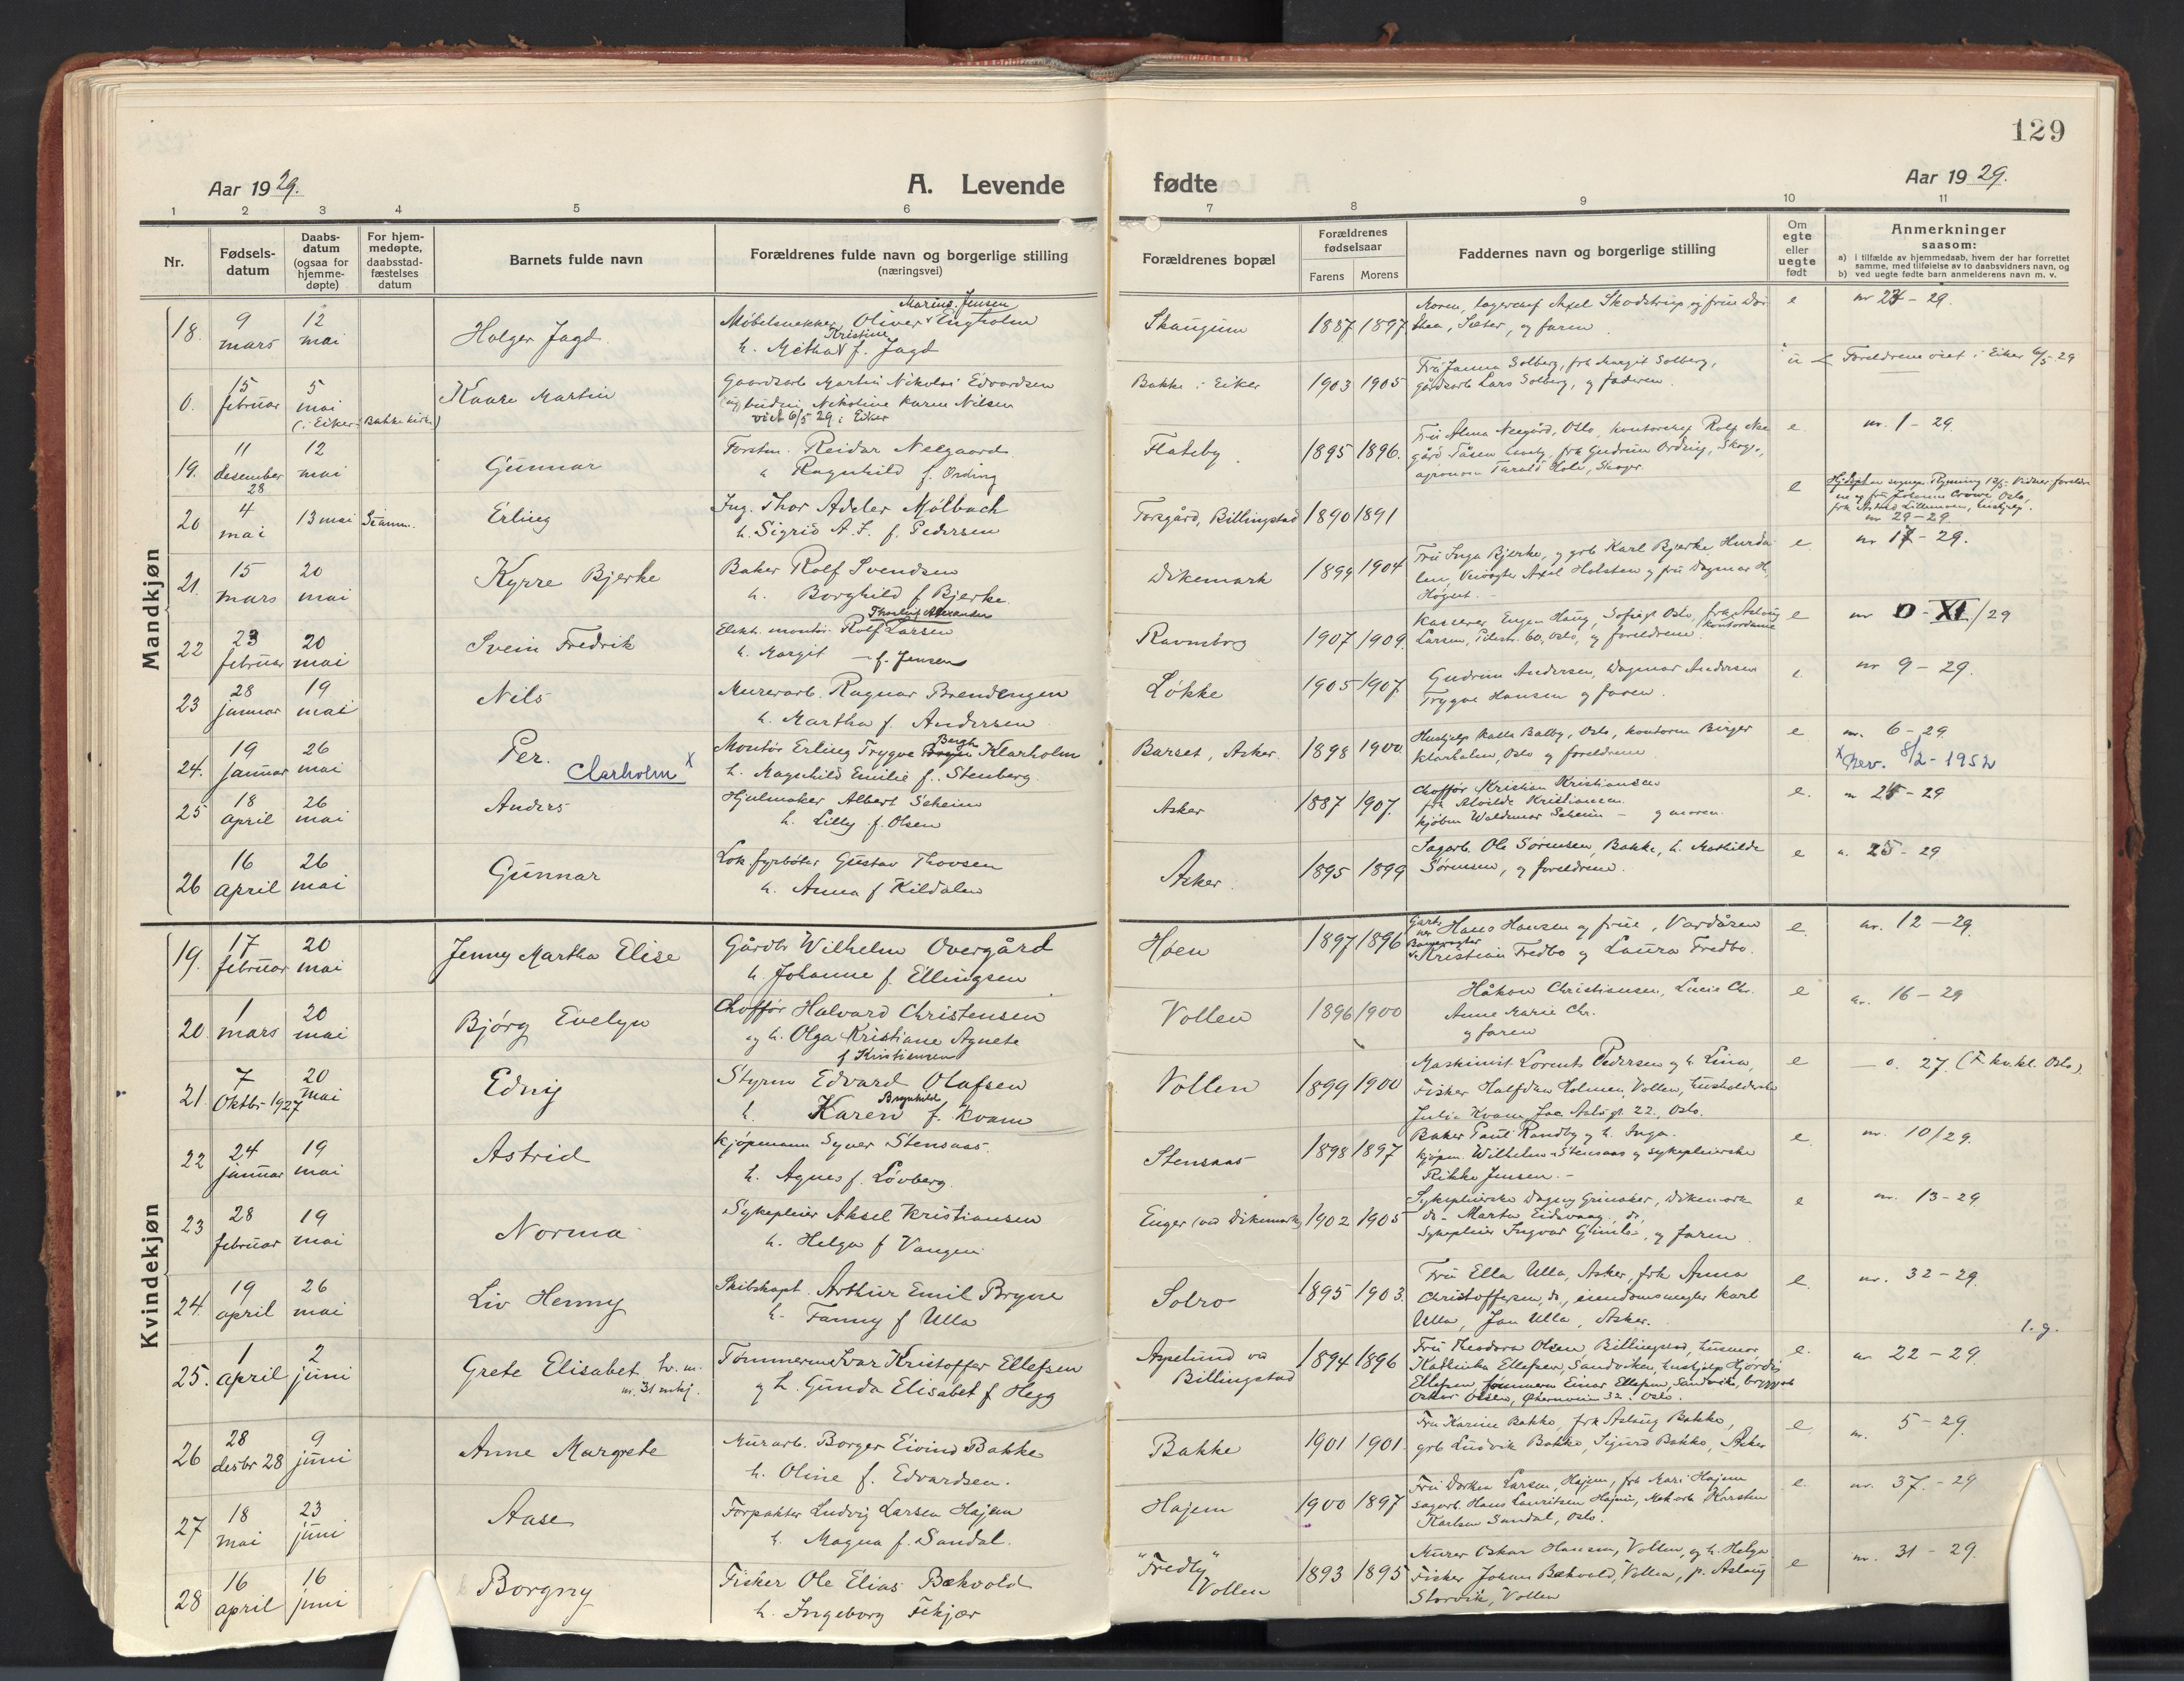 129
Aar 1929.
A. Levende
fødte
Aar 1929.
1 2 3 4 5 6 7 8 9 10 11
Nr.
Fødsels-
datum
Daabs-
datum
(ogsaa for
hjemme-
døpte)
For hjem-
medøpte,
daabsstad-
fæstelses
datum
Barnets fulde navn
Forældrenes fulde navn og borgerlige stilling
(næringsvei)
Forældrenes bopæl
Forældrenes
fødselsaar
Farens Morens
Faddernes navn og borgerlige stilling
Om
egte
eller
uegte
født
Anmerkninger
saasom:
a) i tilfælde av hjemmedaab, hvem der har forrettet
samme, med tilføielse av to daabsvidners navn, og
b) ved uegte fødte barn anmelderens navn m. v.
Mandkjøn
18. 9 mars 12 mai
Holger Jagd
Marius Jensen
Møbelsnekker Oliver Engholm
Kristine
h. Metha f. Jagd
Skaugum
1887 1897
e
nr 27 - 29.
0. 15 februar 5 mai
(i Eiker: Bakke kirke)
Kaare Martin
Gaardsarb Martin Nikolai Edvardsen
Nikoline Karen Nilsen
viet 6/5 29 i Eiker
Bakke i Eiker
1903 1905
Fru Janna Solberg, frk Margit Solberg,
gårdsarb Lars Solberg, og faderen.
u
Foreldrene viet i Eiker 6/5-29
19. 11 desember 28 12 mai
Gunnar
Forstm. Reidar Neegaard
" Ragnhild f. Ording
Flateby
1895 1896.
e
nr. 1 - 29.
20 4 mai 13 mai
Erling
Ing. Thor Adeler Mølbach
h. Sigrid A. F. f. Pedersen
Torsgård, Billingstad
1890 1891
e
nr 29-29
21. 15 mars 20 mai
Kyrre Bjerke
Baker Rolf Svendsen
h. Borghild f Bjerke.
Dikemark
1899 1904
Fru Inga Bjerke, og grb Karl Bjerke Hurda
len, Axel Holsten og fru Dagmar H.
e
nr 17 - 29.
22 23 februar 20 mai
Svein Fredrik
Thorleif Alexander
Elekt. montør Rolf Larsen
h. Margit — f. Jensen
Ravnsborg
1907 1909.
Kasserer Eugen Haug, Sofiesgt Oslo, frk Aslaug
Larsen, Oslo, og foreldrene.
e
nr 0 - XI/29
23 28 januar 19 mai
Nils
Murerarb. Ragnar Brendengen
h. Martha f. Andersen
Løkke
1905 1907
Gudrun Andersen, Dagmar Andersen
Trygve Hansen og faren.
e.
nr 9 - 29.
24. 19 januar 26 mai
Per. Clarholm x
Bergh
Montør Erling Trygve Klarholm
h. Magnhild Emilie f. Stenberg
Barset, Asker.
1898 1900
Hushjelp Kalla Balby, Oslo, kontoren Birger
Klarholm, Oslo og foreldrene
e
nr. 6 - 29
x Nev. 8/2 - 1952
25 18 april 26 mai
Anders
Hjulmaker Albert Scheim
h. Lilly f. Olsen
Asker
1887 1907.
Chaffør Kristian Kristiansen
frk Alvilde Kristiansen.
kjøbm Waldemar Scheim — og moren.
e.
nr 24 - 29
26 16 april 26 mai
Gunnar
Lok.fyrbøter Gustav Thovsen
h. Anna f Kildalen
Asker.
1895 1899
Sagarb. Ole Sørensen, Bakke, h. Mathilde
Sørensen, og foreldrene.
e
n. 25 - 29
Kvindekjøn
19. 17 februar 20 mai
Jenny Martha Elise
Gårdbr Wilhelm Overgård
h. Johanne f. Ellingsen
Hoen
1897 1896
Hans Hansen og frue, Vardåsen
Kristian Fredbo og Laura Fredbo.
e.
nr. 12 - 29.
20. 1 mars 20 mai
Bjørg Evelyn
Chaffør Halvard Christensen
og h. Olga Kristiane Agnete
f Kristiansen
Vollen
1896 1900
Håkon Christiansen, Lucie Chr.
Anne Marie Chr.
og faren
e
nr. 16 - 29
21. 7 Oktbr 1927 20 mai
Edny
Styrm Edvard Olafsen
Brynhild
h. Karen f. Kvam
Vollen
1899 1900
Maskinist Lorents Pedersen og h. Lina,
Fisker Halfdan Holmen, Vollen, husholderske
Julia Kvam, Jac Aalsgt. 22, Oslo.
e
- o. 27 (F. kv.kl. Oslo).
22 24 januar 19 mai
Astrid
Kjøpmann Syver Stensaas
h. Agnes f. Løvberg
Stensaas
1898 1897
Baker Paul Randby og h. Inga.
kjøpm. Wilhelm Stensaas og sykepleierske
Rikke Jensen.-
e.
nr. 10/29.
23 28 februar 19 mai
Norma
Sykepleier Aksel Kristiansen
h. Helga f Vangen
Enger (ved Dikemark)
1902 1905
Sykepleierske Dagny Grinaker, Dikemark
do - Martha Eidsvaag, do,
Sykepleier Ingvar Gjimle, og faren.
e
nr. 13-29.
24. 19 april 26 mai
Liv Henny
Skibskapt. Arthur Emil Bryne
h. Fanny f Ulla
Solro
1895 1903.
Fru Ella Ulla, Asker, frk Anna
Christoffersen, do, eiendomsmegler Karl
Ulla, Jan Ulla, Asker.
e.
nr. 32 - 29.
1. g.
25. 1 april 2 juni
Grete Elisabet tv. m.
nr. 31 mkj.
Tømmerm Ivar Kristoffer Ellefsen
og h. Gunda Elisabet f Hegg
Aspelund ved
Billingstad
1894 1896
Fru Theodora Olsen Billingstad, husmor
Kathinka Ellefsen, Sandviken, hushjelp Hjørdis
Ellefsen tømmerm Einar Ellefsen, Sandvika, bryggearb
Oskar Olsen, Økernveien 32. Oslo.
e.
nr 22 - 29.
26 28 desbr 28 9 juni
Anne Margrete
Murarb. Borger Eivind Bakke
h. Oline f. Edvardsen.
Bakke
1901 1901.
Fru Karine Bakke, frk Aslaug Bakke,
grb Ludvik Bakke, Sigurd Bakke, Asker
e.
nr. 5 - 29.
27 18 mai 23 juni
Aase
Forpakter Ludvig Larsen Hajem
h. Magna f. Sandal.
Hajem
1900 1897
Fru Dorthea Larsen, Hajem, frk Mari Hajem
sagarb. Hans Lauritsen Hajem, Mek arb Karsten
Karlsen Sandal, Oslo.
e.
nr. 37. - 29
28 16 april 16 juni
Borgny
Fisker Ole Elias Bækvold
h. Ingeborg Fekjær
"Fredly"
Vollen
1893 1895
Murer Oskar Hansen, Vollen, og h. Helga
Fisker Johan Bækvold, Vollen, p. Aslaug
Storvik, Vollen
e
nr. 31 - 29.